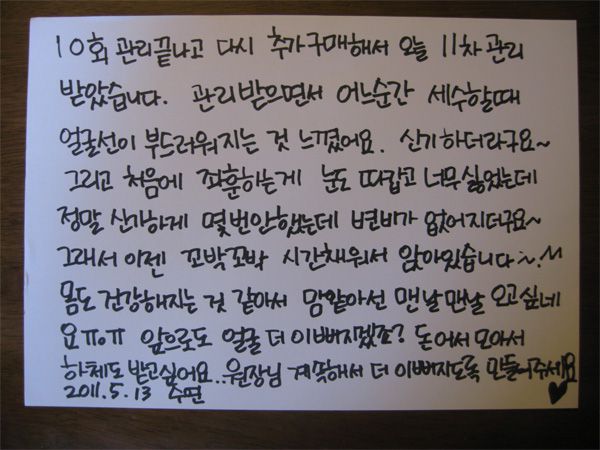 10회 관리끝나고 다시 추가구매해서 오늘 11차 관리
받았습니다. 관리받으면서 어느순간 세수할때
얼굴선이 부드러워지는 것 느꼈어요. 신기하더라구요~
그리고 처음에 좌훈하는게 눈도 따갑고 너무싫었는데
정말 신기하게 몇번안했는데 변비가 없어지더구요~
그래서 이젠 꼬박꼬박 시간채워서 앉아있습니다~.^^
몸도 건강해지는 것 같아서 맘같아선 맨날맨날 오고싶네
요ㅠ.ㅠ 앞으로도 얼굴 더 이뻐지겠죠? 돈어서 모아서
하체도 받고싶어요..원장님 계속해서 더 이뻐지도록 만들어주세요
2011.5.13 수면